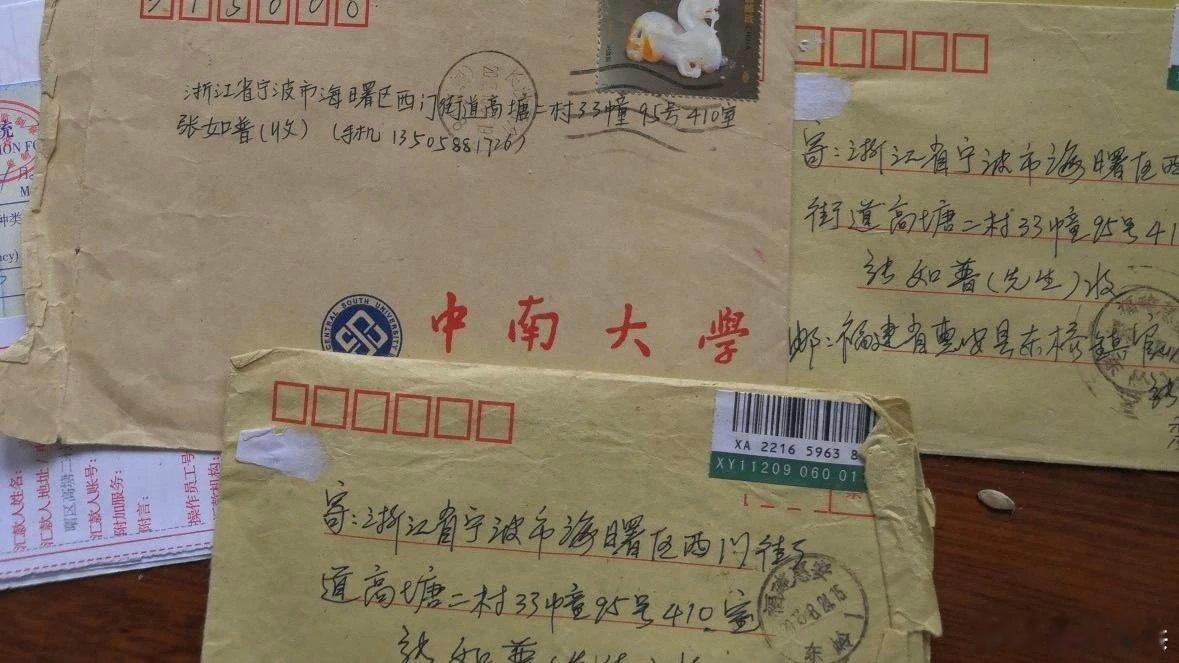 315000
浙江省宁波市海曙区西门街道高塘二村33幢95号410室
张如普(收) (手机 13505881726)
CENTRAL SOUTH UNIVERSITY
中南大学
寄:浙江省宁波市海曙区西
街道高塘二村33幢95号41
张如普(先生)收
邮:福建省惠安县东桥镇
XA 2216 5963 8
XY11209 060 01
寄:浙江省宁波市海曙区西门街
道高塘二村33幢95号410室
张如普(先生)收
福建惠安
8.24.15
东岭
汇款人姓名:
汇款人地址:
曙区高塘二
汇款人账号:
附加服务:
附言:
操作员工号